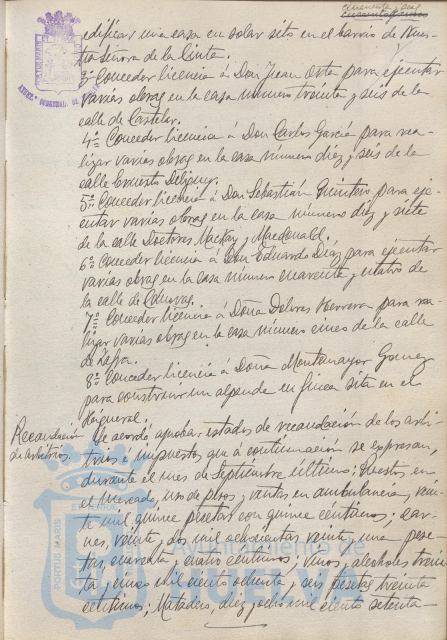 cincuenta y dos
edificar una casa en solar sito en el barrio de Nues-
tra Señora de la Cinta.
3º Conceder licencia á Don Juan Orta para ejecutar
varias obras en la casa número treinta y seis de la
calle de Castelar.
4º Conceder licencia á Don Carlos García para rea-
lizar varias obras en la casa número diez y seis de la
calle Ernesto Deligny.
5º Conceder licencia á Don Sebastián Quintero para eje-
cutar varias obras en la casa número diez y siete
de la calle Doctores Mackay y Macdonald.
6º Conceder licencia á Don Eduardo Díaz para ejecutar
varias obras en la casa número cuarenta y cuatro de
la calle de
7º Conceder licencia á Doña Dolores Herrera para rea-
lizar varias obras en la casa número cinco de la calle
de Zafra.
8º Conceder licencia á Doña Montemayor Gomez
para construir un alpende en finca sita en el
Higueral.
Recaudación
de arbitrios.
Se acordó aprobar estados de recaudación de los arbi-
trios é impuestos que á continuación se expresan,
durante el mes de Septiembre último: Puestos en
el Mercado, uso de pesos y ventas en ambulancia, vein-
te mil quince pesetas con quince céntimos; car-
nes, veinte y dos mil ochocientas veinte y una pese-
tas, cuarenta y cuatro céntimos; vinos y alcoholes trein-
ta y cinco mil ciento ochenta y seis pesetas treinta
céntimos; Matadero, diez y ocho mil ciento setenta
Ayuntamiento de
HUELVA
PORTUS MARIS